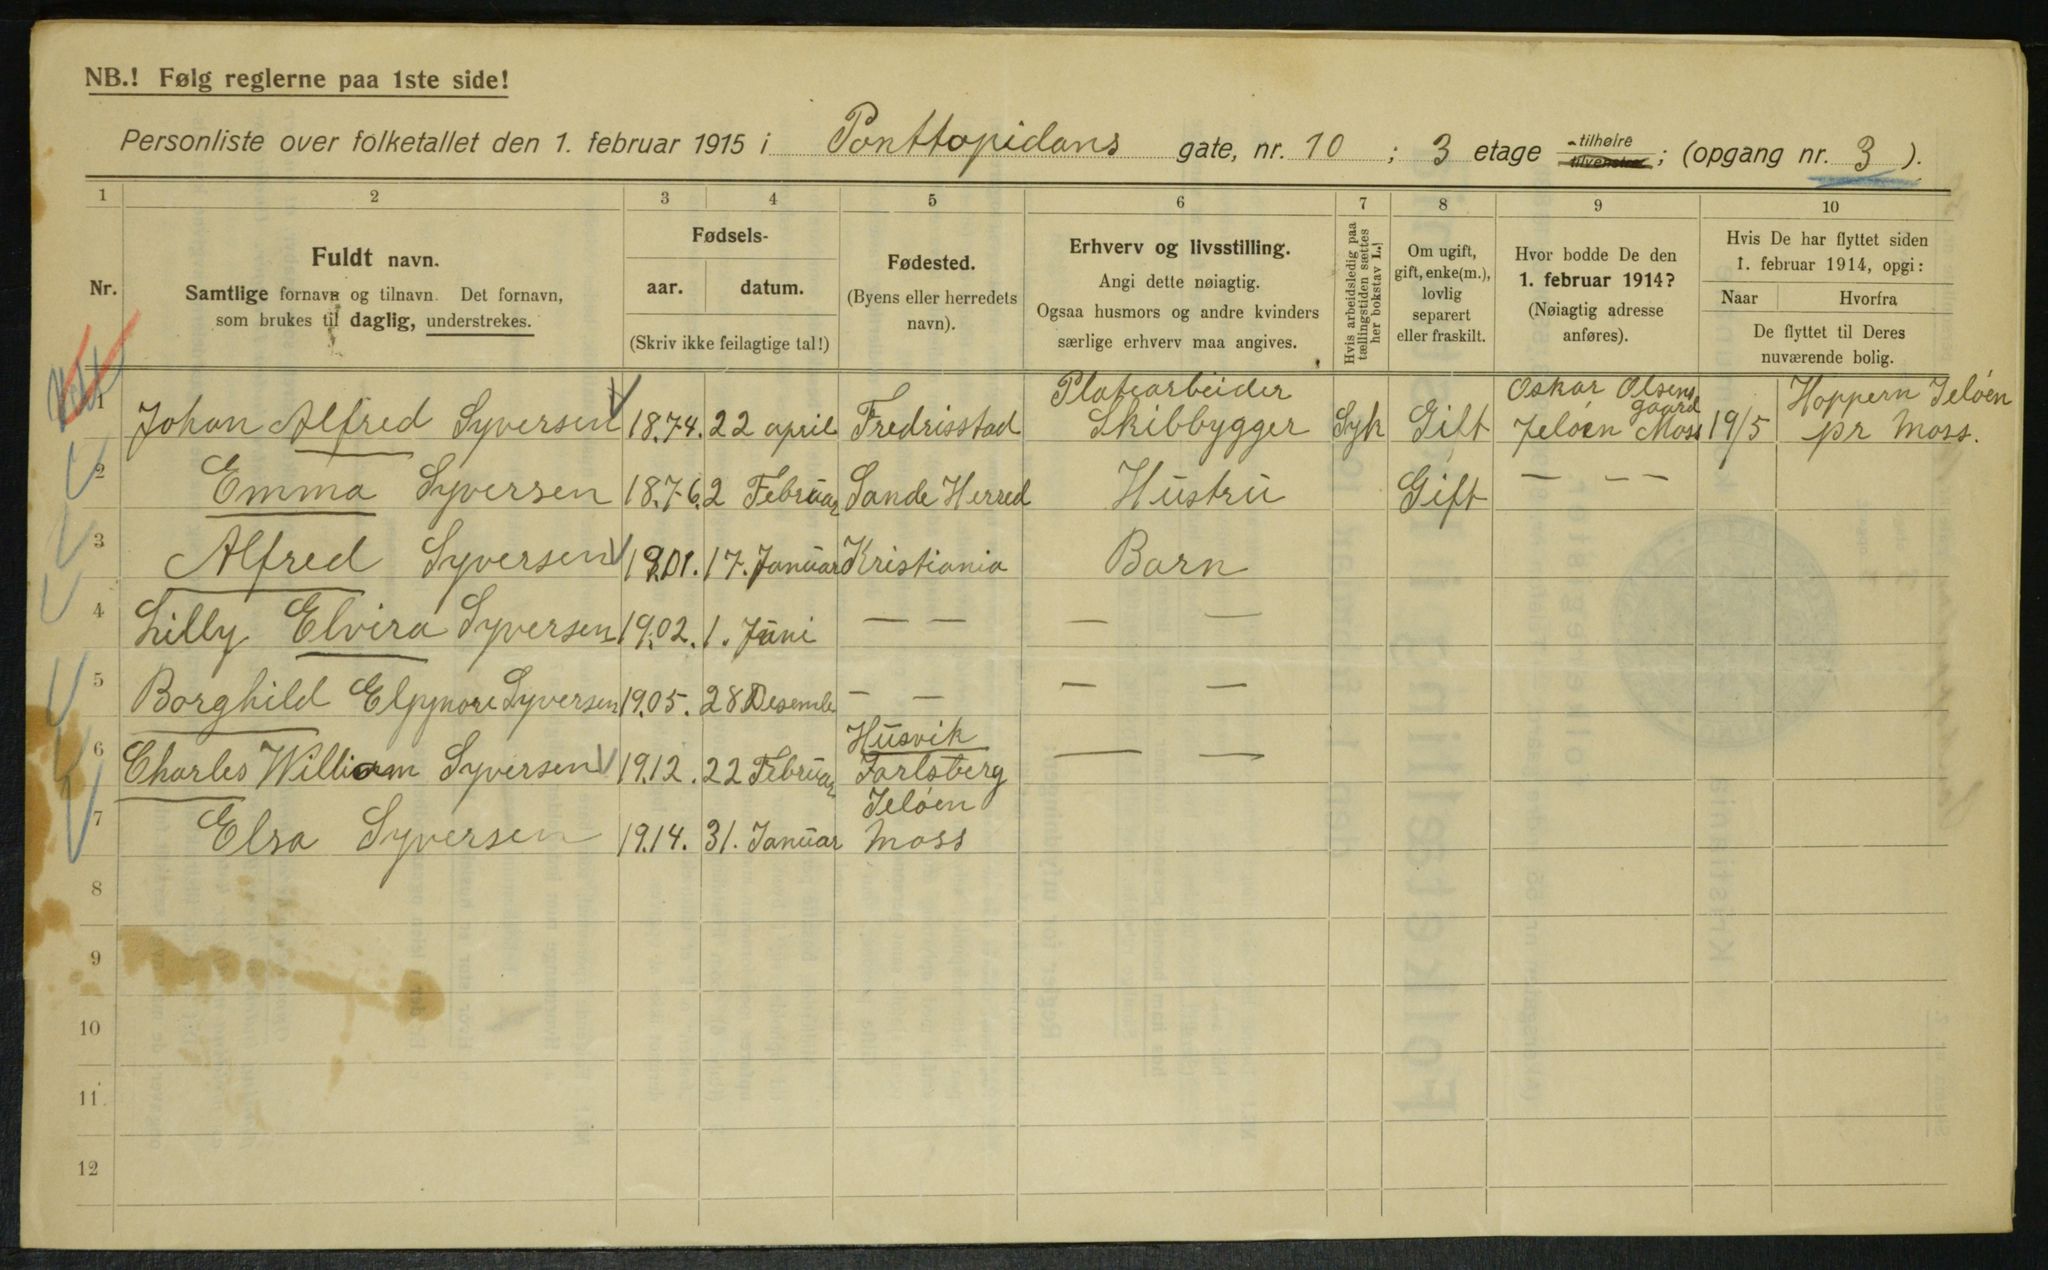 NB.! Følg reglerne paa 1ste side!
Personliste over folketallet den 1. februar 1915 i Ponttopidans gate, nr. 10 ; 3 etage tilhøire tilvenstre; (opgang nr. 3 ).
1 2 3 4 5 6 7 8 9 10
Nr.
Fuldt navn.
Samtlige fornavn og tilnavn. Det fornavn,
som brukes til daglig, understrekes.
Fødsels-
aar. datum.
(Skriv ikke feilagtige tal!)
Fødested.
(Byens eller herredets
navn).
Erhverv og livsstilling.
Angi dette nøiagtig.
Ogsaa husmors og andre kvinders
særlige erhverv maa angives.
Hvis arbeidsledig paa
tællingstiden sættes
her bokstav L.!
Om ugift,
gift, enke(m.),
lovlig
separert
eller fraskilt.
Hvor bodde De den
1. februar 1914?
(Nøiagtig adresse
anføres).
Hvis De har flyttet siden
1. februar 1914, opgi:
Naar Hvorfra
De flyttet til Deres
nuværende bolig.
Platearbeider Oskar Olsens gaard Hoppern Jeløen
1 Johan Alfred Syversen 1874. 22 april Fredrisstad Skibbygger Syk Gift Jeløen Moss 19/5 pr Moss.
2 Emma Syversen 1876. 2 Februar Sande Herred Hustru Gift — — —
3 Alfred Syversen 1901. 17. Januar Kristiania Barn
4 Lilly Elvira Syversen 1902. 1. Juni — — — —
5 Borghild Syversen 1905. 28 Desembe — — — —
Husvik
6 Charles William Syversen 1912. 22 Februar Jarlsberg — —
Jeløen
7 Elsa Syversen 1914. 31. Januar Moss
8
9
10
11
12